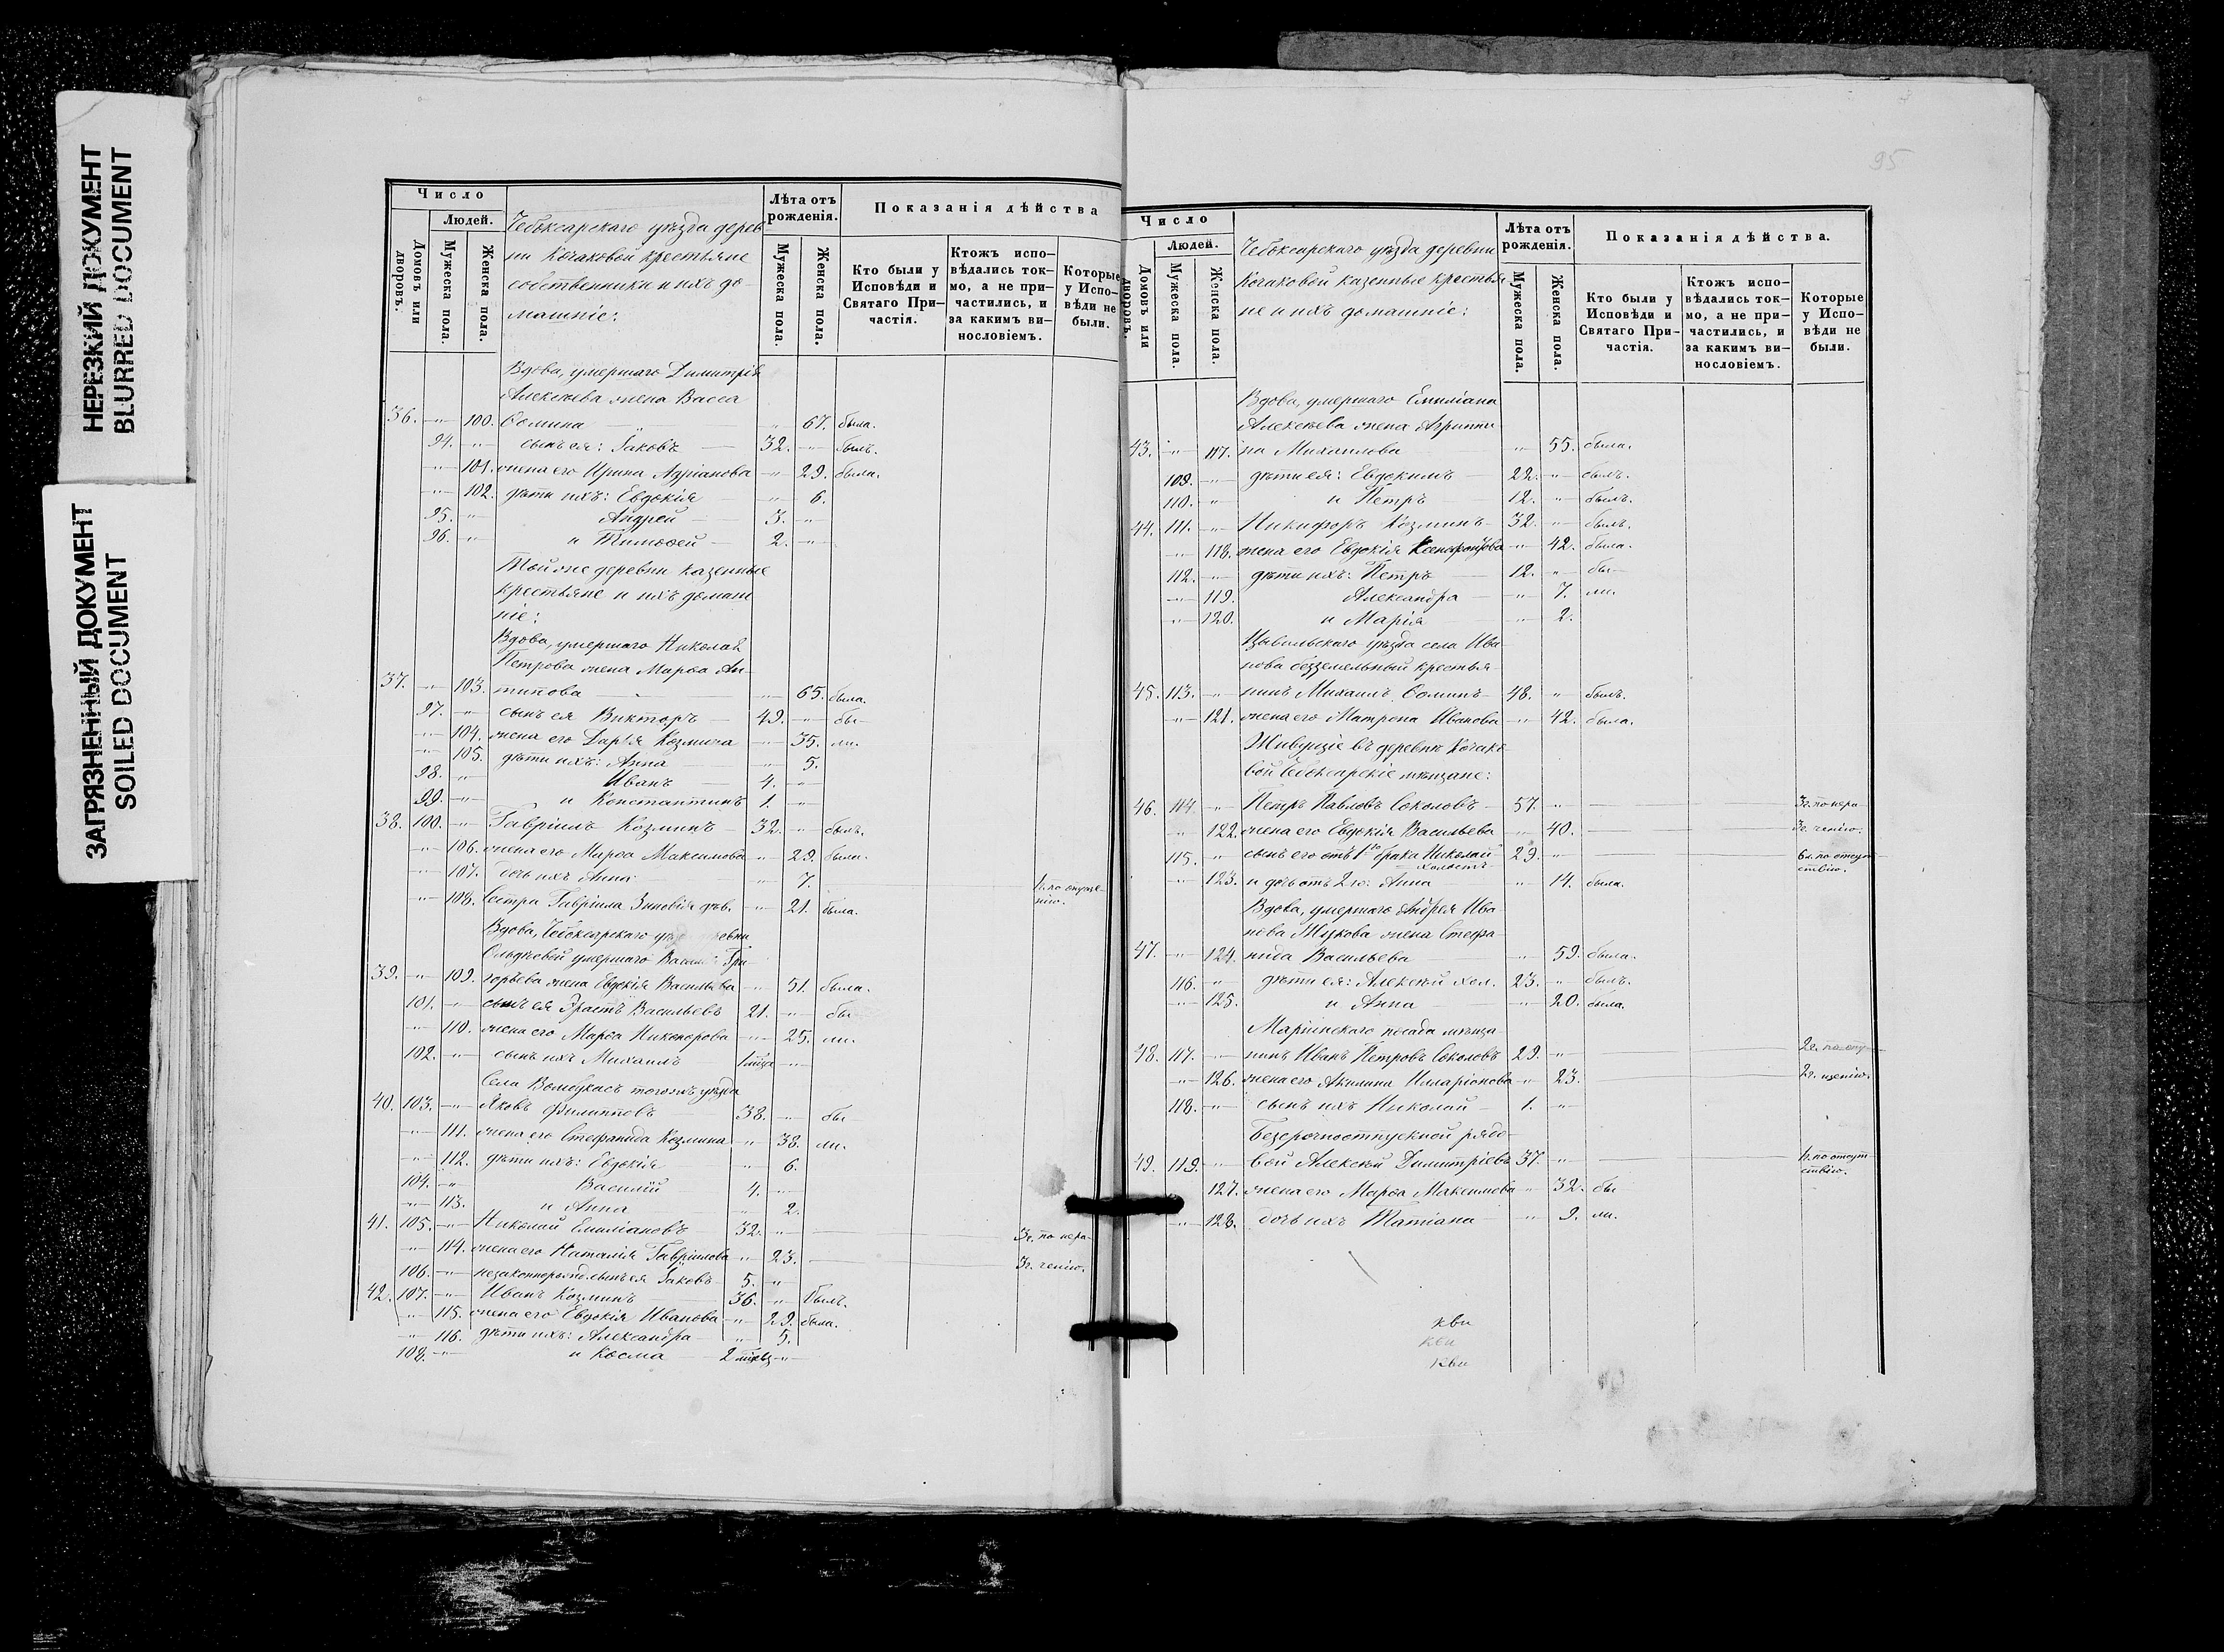 НЕРЕЗКИЙ ДОКУМЕНТ
BLURRED DOCUMENT
ЗАГРЯЗНЕННЫЙ ДОКУМЕНТ
SOILED DOCUMENT
Число
Людей.
Домовъ или дворовъ.
Мужеска пола.
Женска пола.
Чебоксарскаго уѣзда дерев
ни Кочаковой крестьяне
собственники и ихъ до-
машніе:
Лѣта отъ рожденія.
Мужеска пола.
Женска пола.
Показанія дѣйства
Кто были у Исповѣди и Святаго При-частія.
Ктожъ испо-вѣдались ток-мо, а не при-частились, и за какимъ ви-нословіемъ.
Которые у Испо-вѣди не были.
Вдова, умершаго Димитрія
Алексѣева жена Васса
36. -„- 100. Ѳомина „ 67. была.
94. -„- сынъ ея: Іаковъ 32. -„- былъ.
-„- 101. жена его Ирина Адріанова -„- 29. была.
-„- 102. дѣти ихъ: Евдокія -„- 6.
95. -„- Андрей 3. -„-
96. -„- и Тимоѳей 2. -„-
Той же деревни казенные
крестьяне и ихъ домаш
ніе:
Вдова, умершаго Николая
Петрова жена Марѳа Ан-
37. -„- 103. типова -„- 65. была.
97. -„- сынъ ея Викторъ 49. -„- бы-
-„- 104. жена его Дарья Козмина -„- 35. ли.
-„- 105. дѣти ихъ: Анна -„- 5.
98. -„- Иванъ 4. -„-
99. -„- и Константинъ 1. -„-
38. 100. -„- Гавріилъ Козминъ 32. -„- былъ.
-„- 106. жена его Марѳа Максимова -„- 29. была.
-„- 107. дочь ихъ Анна -„- 7.
-„- 108. Сестра Гавріила Зиновія дѣв. -„- 21. была.
Вдова, Чебоксарскаго
умершаго
39. -„- 109. горьева жена Евдокія Васильева -„- 51. была.
101. -„- сынъ ея Эрастъ Васильевъ 21. -„- бы
-„- 110. жена его Марѳа Никонорова -„- 25. ли.
102. -„- сынъ ихъ Михаилъ -„-
Села тогожъ уѣзда
40. 103. -„- Яковъ Филипповъ 38. -„- бы-
-„- 111. жена его Стефанида Козмина -„- 38. ли.
-„- 112. дѣти ихъ: Евдокія -„- 6.
104. -„- Василій 4. -„-
-„- 113. и Анна -„- 2.
41. 105. -„- Николай Емиліановъ 32. -„- 3г. по нера-
-„- 114. жена его Наталія Гавріилова -„- 23. 3г. ченію.
106. -„- незаконнорожд. сынъ ея Іаковъ 5. -„-
42. 107. -„- Иванъ Козминъ 36. -„- былъ.
-„- 115. жена его Евдокія Иванова -„- 29. была.
-„- 116. дѣти ихъ: Александра -„- 5.
108. -„- и Косма 2 -„-
95
Число
Людей.
Домовъ или дворовъ.
Мужеска пола.
Женска пола.
Чебоксарскаго уѣзда деревни
Кочаковой казенные крестья
не и ихъ домашніе:
Лѣта отъ рожденія.
Мужеска пола.
Женска пола.
Показанія дѣйства.
Кто были у Исповѣди и Святаго При-частія.
Ктожъ испо-вѣдались ток-мо, а не при-частились, и за какимъ ви-нословіемъ.
Которые у Испо-вѣди не были.
Вдова, умершаго Емиліана
Алексѣева жена Агрипи
43. -„- 117. на Михаилова -„- 55. была.
109. -„- дѣти ея: Евдокимъ 22. -„- былъ.
110. -„- и Петръ 12. -„- былъ.
44. 111. -„- Никифоръ Козминъ 32. -„- былъ.
-„- 118. жена его Евдокія Ксенофонтова -„- 42. была.
112. -„- дѣти ихъ: Петръ 12. -„- бы-
-„- 119. Александра -„- 7. ли.
-„- 120. и Марія -„- 2.
Цывильскаго уѣзда села Ива
нова безземельный крестья-
45. 113. -„- нинъ Михаилъ Ѳоминъ 48. -„- былъ.
-„- 121. жена его Матрона Иванова -„- 42. была.
Живущіе въ деревнѣ Кочако
вой Чебоксарскіе мѣщане:
46. 114 -„- Петръ Павловъ Соколовъ 57. -„- 3г. по нера-
-„- 122. жена его Евдокія Васильева -„- 40. 3г. ченію.
115. -„- сынъ его отъ 1го брака Николай холостъ 29. -„- 6л. по отсут
ствію.
-„- 123. и дочь отъ 2го: Анна -„- 14. была.
Вдова, умершаго Андрея Ива
нова жена Стефа
47. -„- 124. нида Васильева -„- 59. была.
116. -„- дѣти ея: Алексѣй хол. 23. -„- былъ.
-„- 125. и Анна -„- 20. была.
Маріинскаго посада мѣща-
48. 117. -„- нинъ Иванъ Петровъ Соколовъ 29. -„- 2г. по опу-
-„- 126. жена его Акилина Илларіонова -„- 23. 2г. щенію.
118. -„- сынъ ихъ Николай 1. -„-
Безсрочноотпускной рядо-
49. 119. -„- вой Алексѣй Димитріевъ 37. -„- 1г. по отсут
ствію.
127. жена его Марѳа Максимова -„- 32. бы
-„- 128. дочь ихъ Татіана -„- 9. ли.
кви
кви
кви